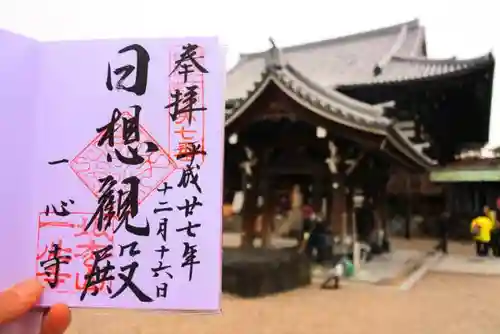 奉拝
平成廿七年
十二月十六日
日想観殿
一心寺